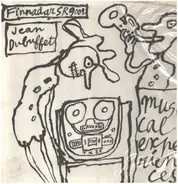 Finnadar SR9002
Jean
Dubuffet
musi
cal
expe
rien
ces